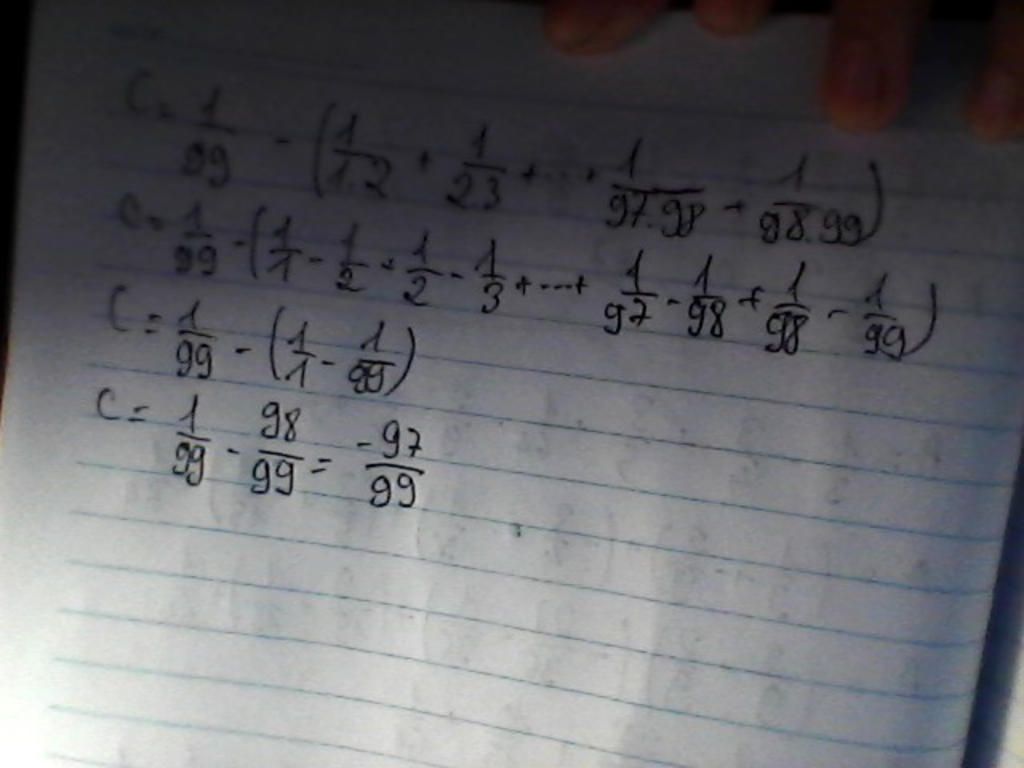 C = 1/99 - (1/1.2 + 1/2.3 + ... + 1/97.98 + 1/98.99)
C = 1/99 - (1/1 - 1/2 + 1/2 - 1/3 + ... + 1/97 - 1/98 + 1/98 - 1/99)
C = 1/99 - (1/1 - 1/99)
C = 1/99 - 98/99 = -97/99